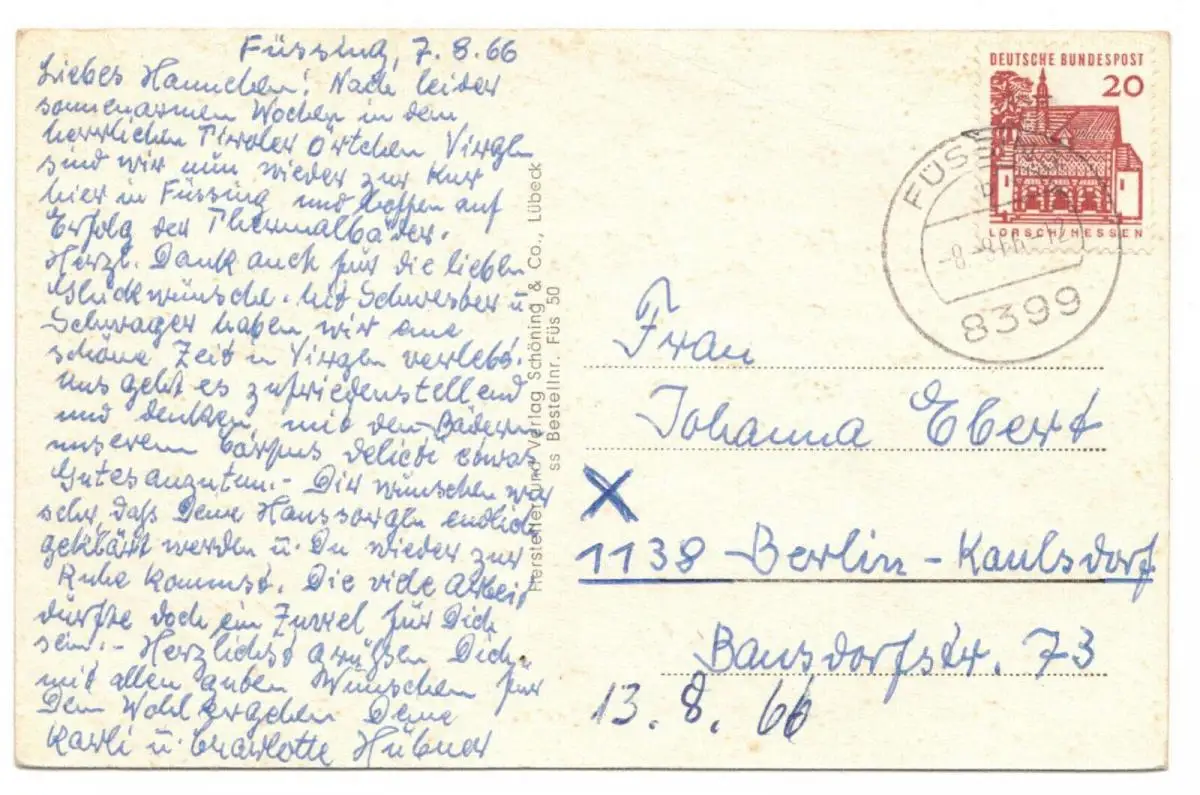 Füssing, 7.8.66
Liebes Hannchen! Nach leider
sonnenarmen Wochen in dem
herrlichen Tiroler Örtchen Virgen
sind wir nun wieder zur Kur
hier in Füssing und hoffen auf
Erfolg der Thermalbäder.
Herzl. Dank auch für die lieben
Glückwünsche. Mit Schwester u.
Schwager haben wir eine
schöne Zeit in Virgen verlebt.
Uns geht es zufriedenstellend
und denken, mit den Bädern
unserem Corpus delicti etwas
Gutes anzutun.- Dir wünschen wir
sehr, daß Deine Haussorgen endlich
geklärt werden u. Du wieder zur
Ruhe kommst. Die viele Arbeit
dürfte doch ein für Dich
sein.- Herzlichst grüßen Dich
mit allen guten Wünschen für
Dein Wohlergehen Deine
Karli u. Charlotte Hübner
Hersteller und Verlag Schöning & Co., Lübeck
ss Bestellnr. Füs 50
DEUTSCHE BUNDESPOST
20
LORSCH/HESSEN
FÜSSING
-8.-8.66-12
8399
Frau
Johanna Ebert
X
1138 Berlin-Kaulsdorf
Bausdorfstr. 73
13.8.66